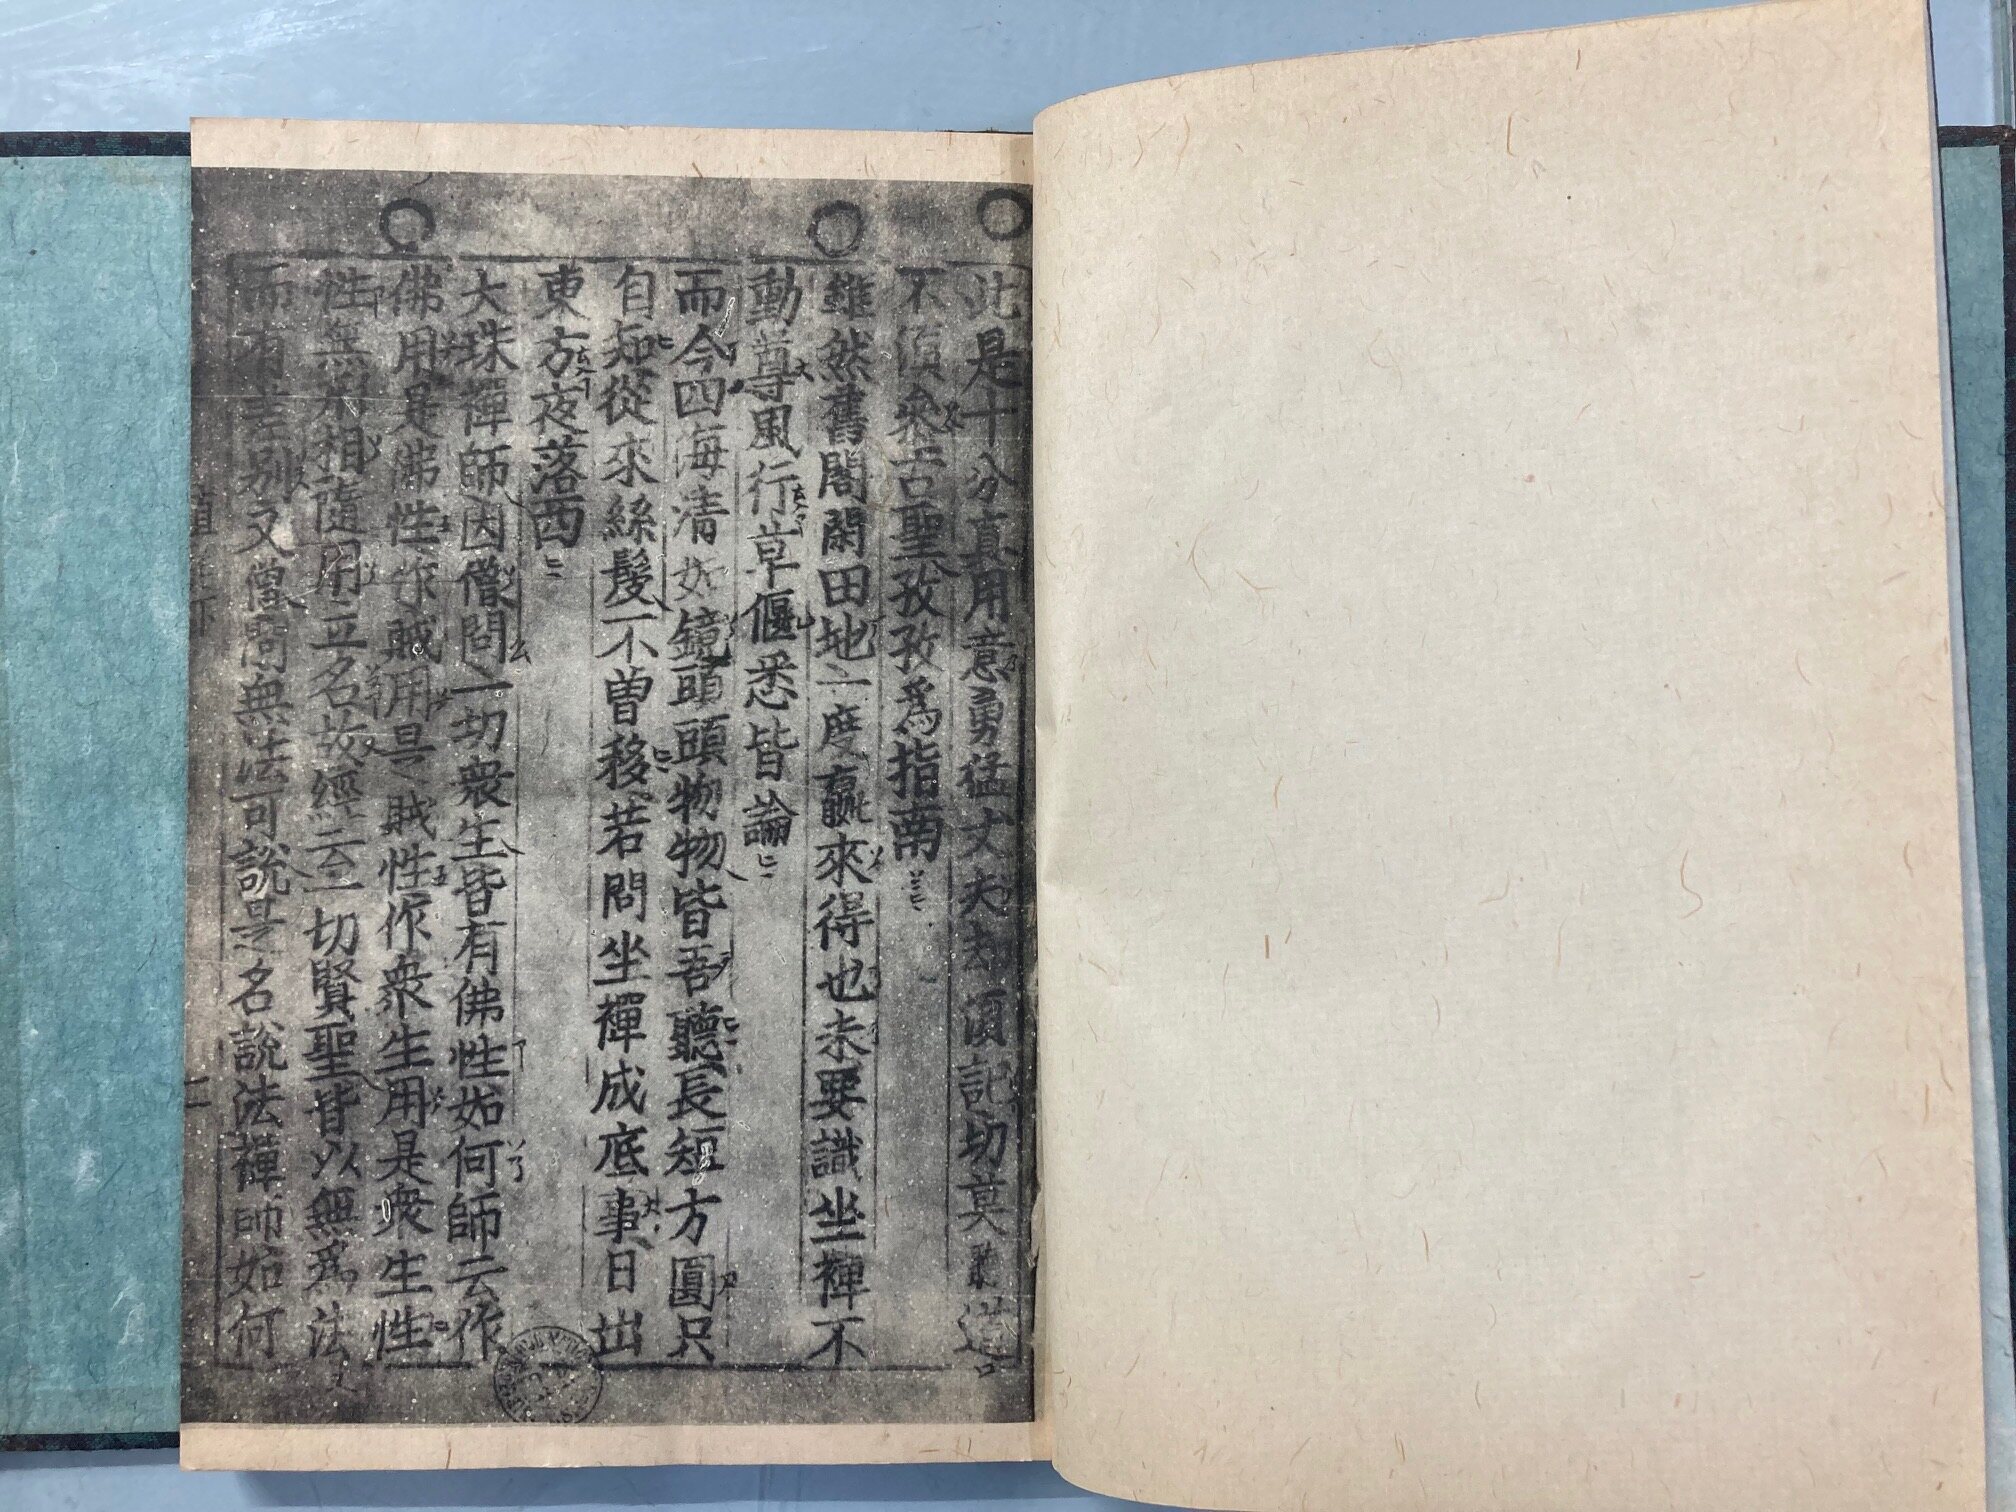 此是十分真用意勇猛丈夫却須記切莫㲉造
不須叅古聖孜孜爲指南
雖然舊閣閑田地一度贏來得也未要識坐禪不
動尊風行草偃悉皆論
而今四海清如鏡頭頭物物皆吾聽長短方圓只
自知從來絲髮不曾移若問坐禪成底事日出
東方夜落西
大珠禪師因僧問一切衆生皆有佛性如何師云作
佛用是佛性作賊用是賊性作衆生用是衆生性
性無形相隨用立名故經云一切賢聖皆以無爲法
而有差別又僧問無法可說是名說法禪師如何